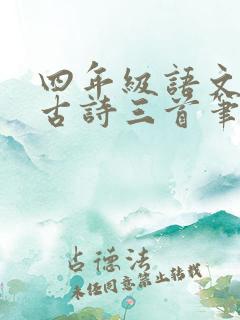 四年級語文
古詩三首筆
古德法
未经同意禁止转载